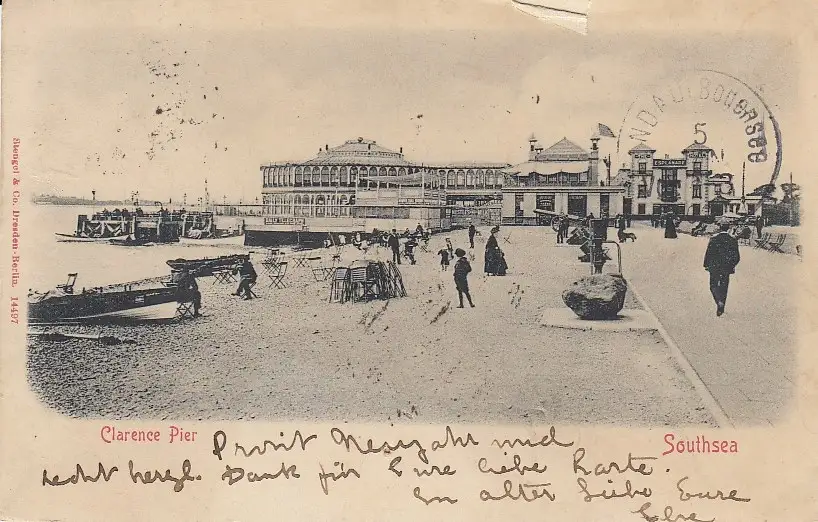 Stengel & Co., Dresden-Berlin. 14497
LINDAU i. Bodensee
5
ESPLANADE
Clarence Pier
Southsea
Prosit Neujahr und
recht herzl. Dank für Eure liebe Karte.
In alter Liebe Eure